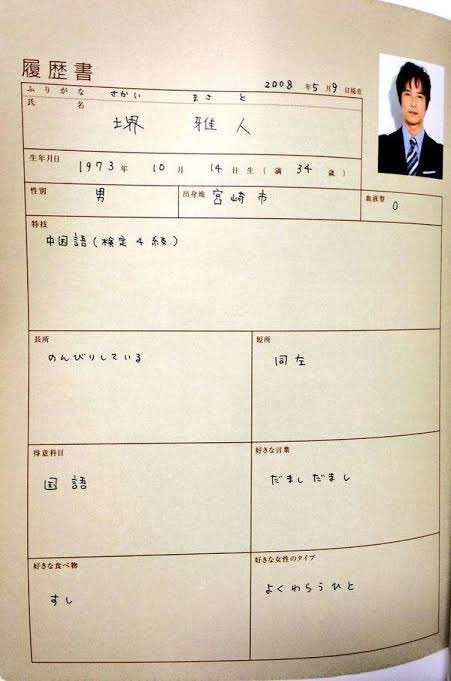 履歴書
2008 年 5 月 9 日現在
ふりがな さかい まさと
氏 名 堺 雅人
生年月日 1973 年 10 月 14 日生 (満 34 歳)
性別 男 出身地 宮崎市 血液型 O
特技
中国語(検定4級)
長所
のんびりしている
短所
同左
得意科目
国語
好きな言葉
だましだまし
好きな食べ物
すし
好きな女性のタイプ
よくわらうひと